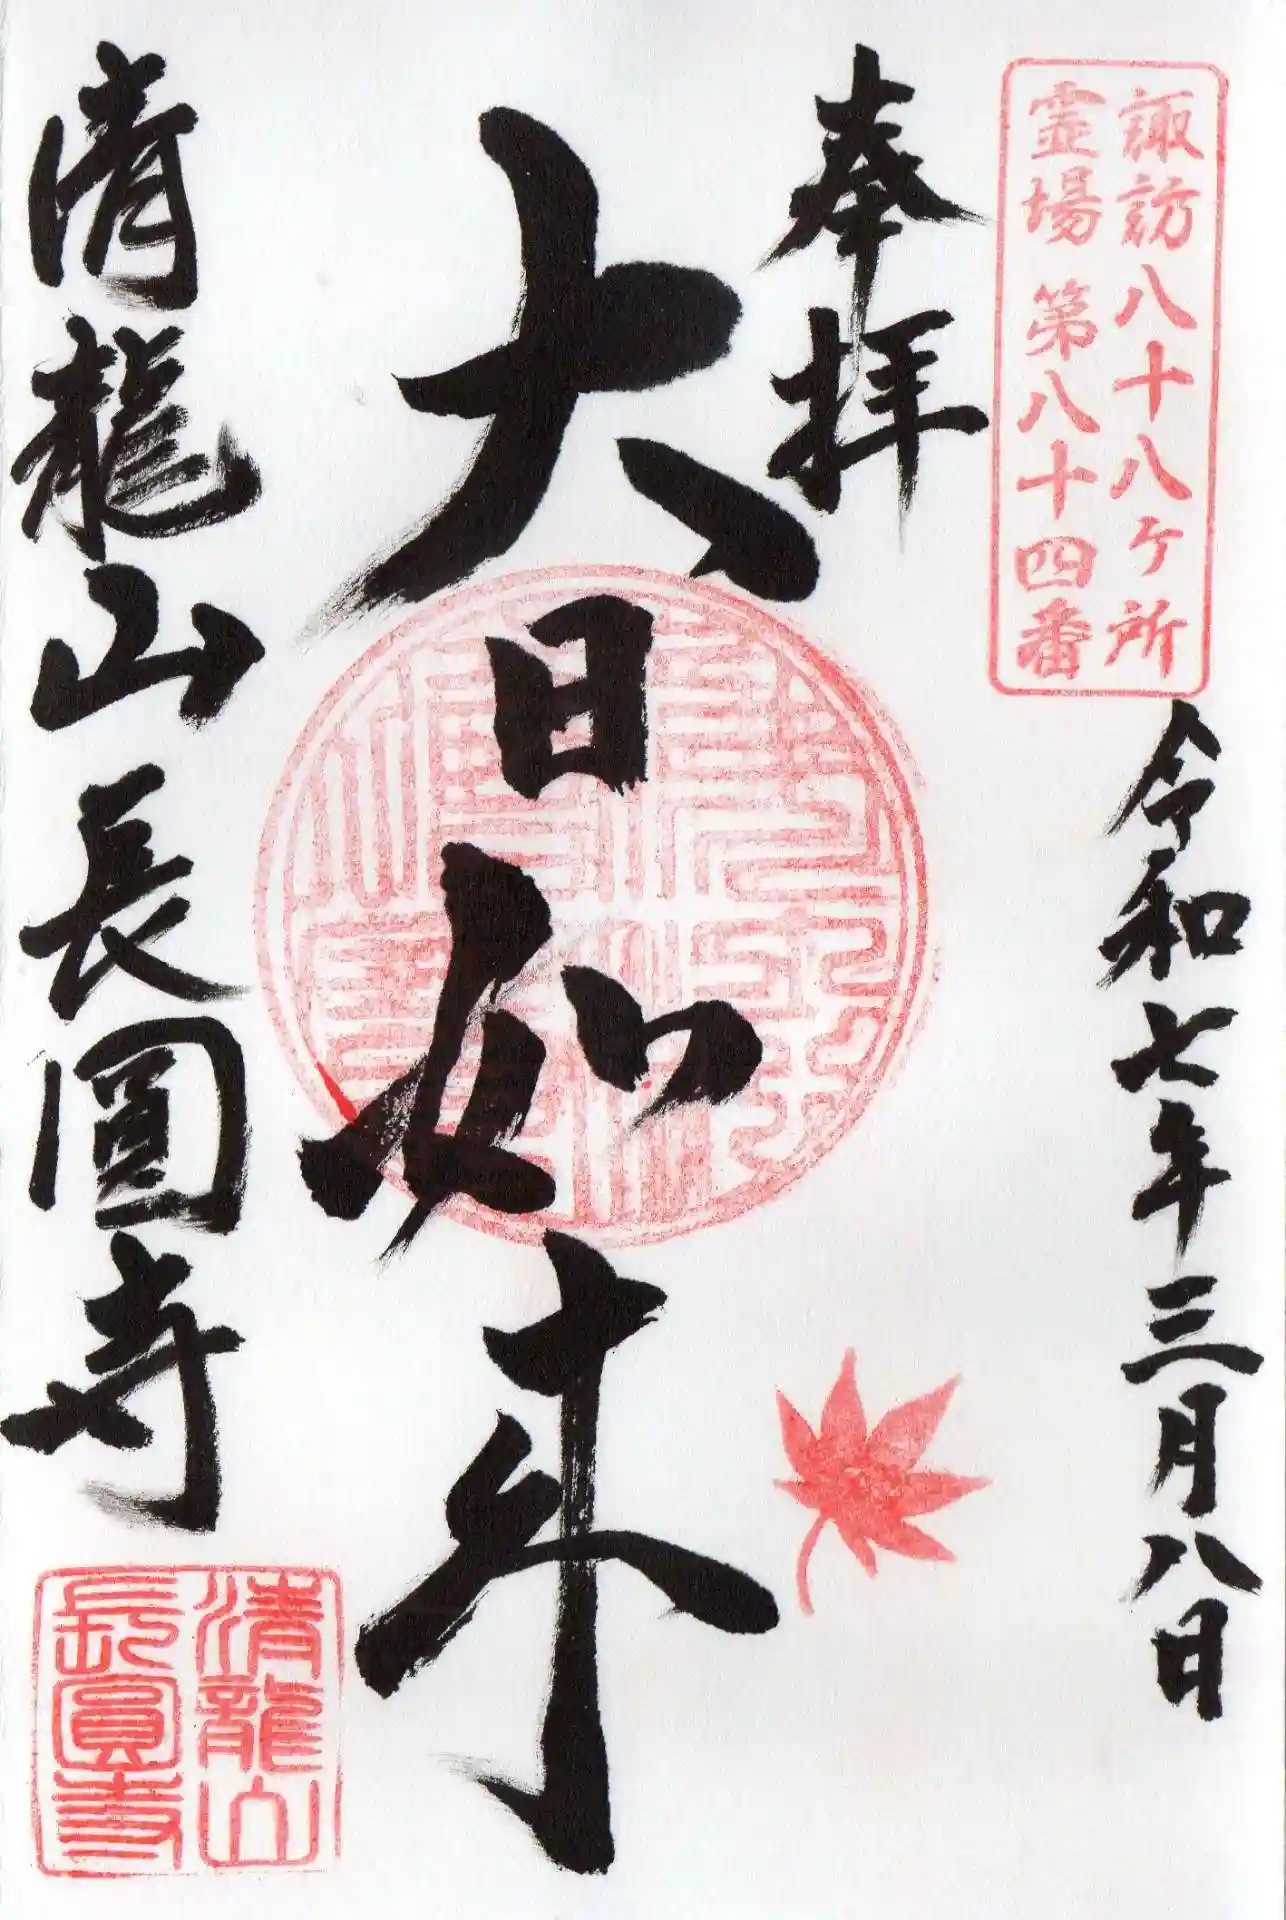 諏訪八十八ヶ所
霊場 第八十四番
令和七年三月八日
奉拝
大日如来
清龍山 長圓寺
清龍山
長圓寺